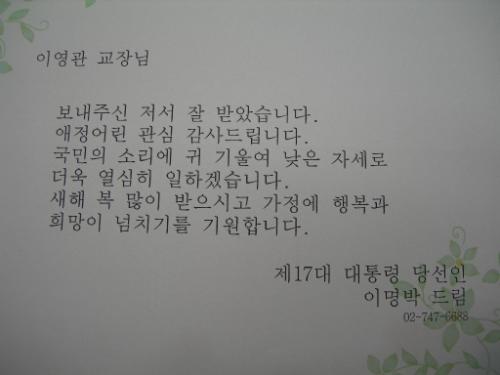 이영관 교장님
보내주신 저서 잘 받았습니다.
애정어린 관심 감사드립니다.
국민의 소리에 귀 기울여 낮은 자세로
더욱 열심히 일하겠습니다.
새해 복 많이 받으시고 가정에 행복과
희망이 넘치기를 기원합니다.
제17대 대통령 당선인
이명박 드림
02-747-6688